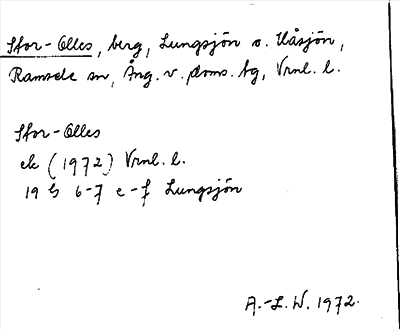 Stor-Olles, berg, Lungsjön o. Uåsjön,
Ramsele sn, Ång. v. doms. bg, Vrnl. l.
Stor-Olles
ek (1972) Vrnl. l.
19 G 6-7 e-f Lungsjön
A.-L. W. 1972.